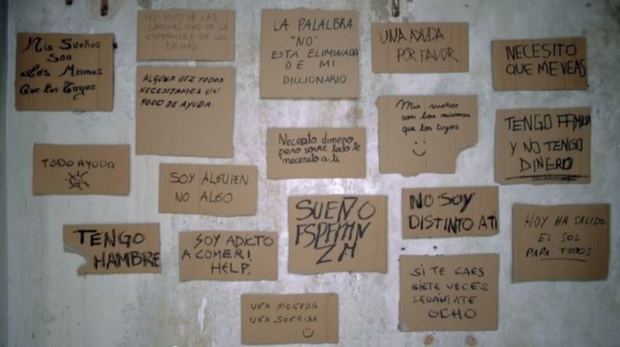 Mis Sueños
Son
Los Mismos
Que los Tuyos
NO VIVO DE LAS
LIMOSNAS, VIVO DE LA
ESPERANZA DE LOS
DEMÁS
LA PALALBRA
"NO"
ESTA ELIMINADA
DE MI
DICCIONARIO
UNA AYUDA
POR FAVOR
NECESITO
QUE ME VEAS
ALGUNA VEZ TODOS
NECESITAMOS UN
POCO DE AYUDA.
Necesito dinero,
pero sobre todo te
necesito a ti
Mis sueños
son los mismos
que los tuyos
TENGO FAMILIA
Y NO TENGO
DINERO
TODO AYUDA
SOY ALGUIEN
NO ALGO
SUEÑO
ESPERAN
ZA
NO SOY
DISTINTO A TI
HOY HA SALIDO
EL SOL
PARA TODOS
TENGO
HAMBRE
SOY ADICTO
A COMER!
HELP.
SI TE CAES
SIETE VECES
LEVÁNTATE
OCHO
UNA MONEDA
UNA SONRISA